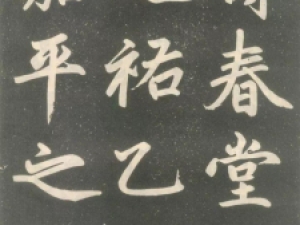 春堂
祐乙
平之